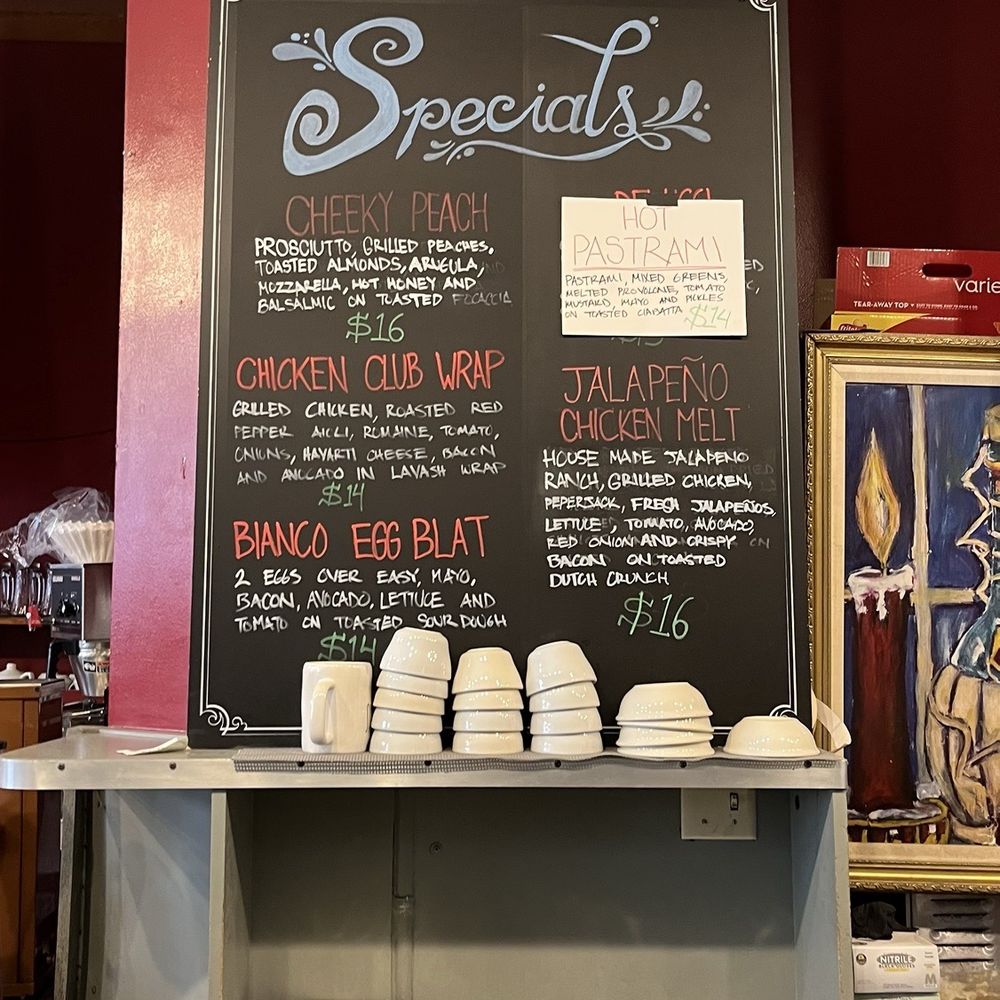 Specials
CHEEKY PEACH
PROSCIUTTO, GRILLED PEACHES,
TOASTED ALMONDS, ARUGULA,
MOZZARELLA, HOT HONEY AND
BALSALMIC ON TOASTED FOCACCIA
$16
CHICKEN CLUB WRAP
GRILLED CHICKEN, ROASTED RED
PEPPER AIOLI, ROMAINE, TOMATO,
ONIONS, HAVARTI CHEESE, BACON
AND AVOCADO IN LAVASH WRAP
$14
BIANCO EGG BLAT
2 EGGS OVER EASY, MAYO,
BACON, AVOCADO, LETTUCE AND
TOMATO ON TOASTED SOURDOUGH
$14
HOT
PASTRAMI
PASTRAMI, MIXED GREENS,
MELTED PROVOLONE, TOMATO
MUSTARD, MAYO AND PICKLES
ON TOASTED CIABATTA $14
JALAPEÑO
CHICKEN MELT
HOUSE MADE JALAPENO
RANCH, GRILLED CHICKEN,
PEPERJACK, FRESH JALAPEÑOS,
LETTUCE, TOMATO, AVOCADO,
RED ONION AND CRISPY
BACON ON TOASTED
DUTCH CRUNCH
$16
TEAR-AWAY TOP
NITRILE
M